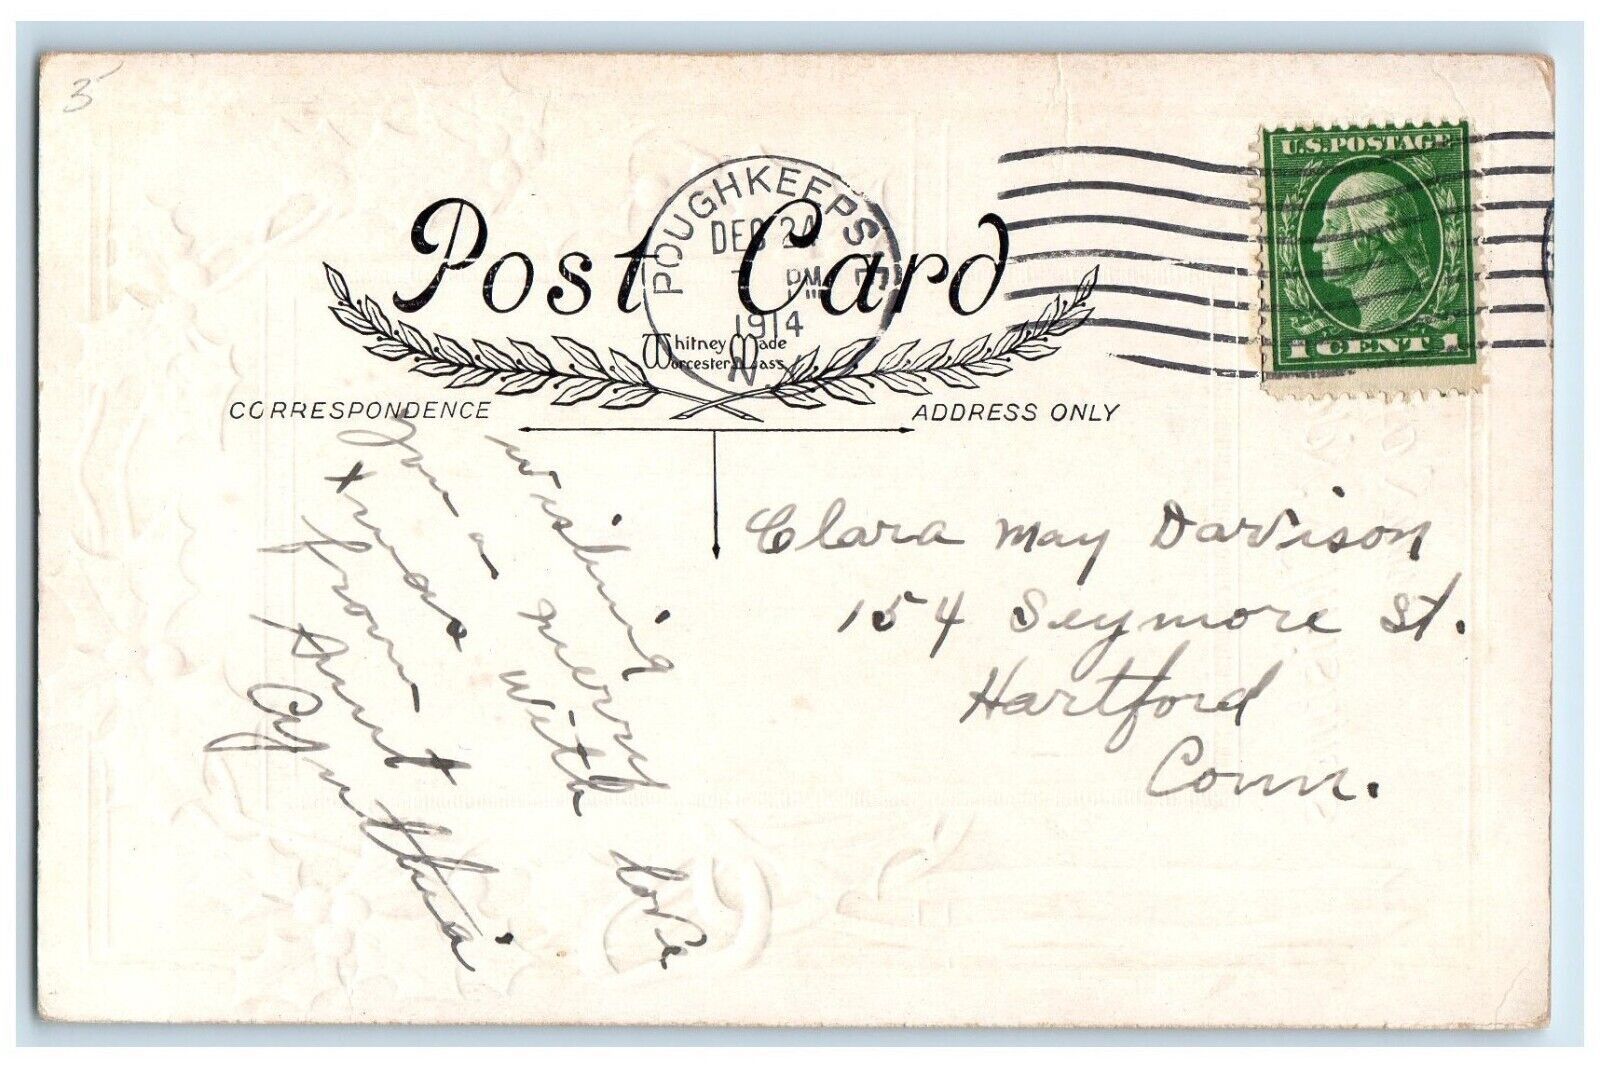 5
U.S. POSTAGE
1 CENT 1
POUGHKEEPSIE
DEC 24
PM
1914
N.Y.
Post Card
Whitney Made
Worcester, Mass
CORRESPONDENCE
ADDRESS ONLY
wishing
you a merry
xmas with love
from
Aunt
Cynthia
Clara May Davison
154 Seymore St.
Hartford
Conn.